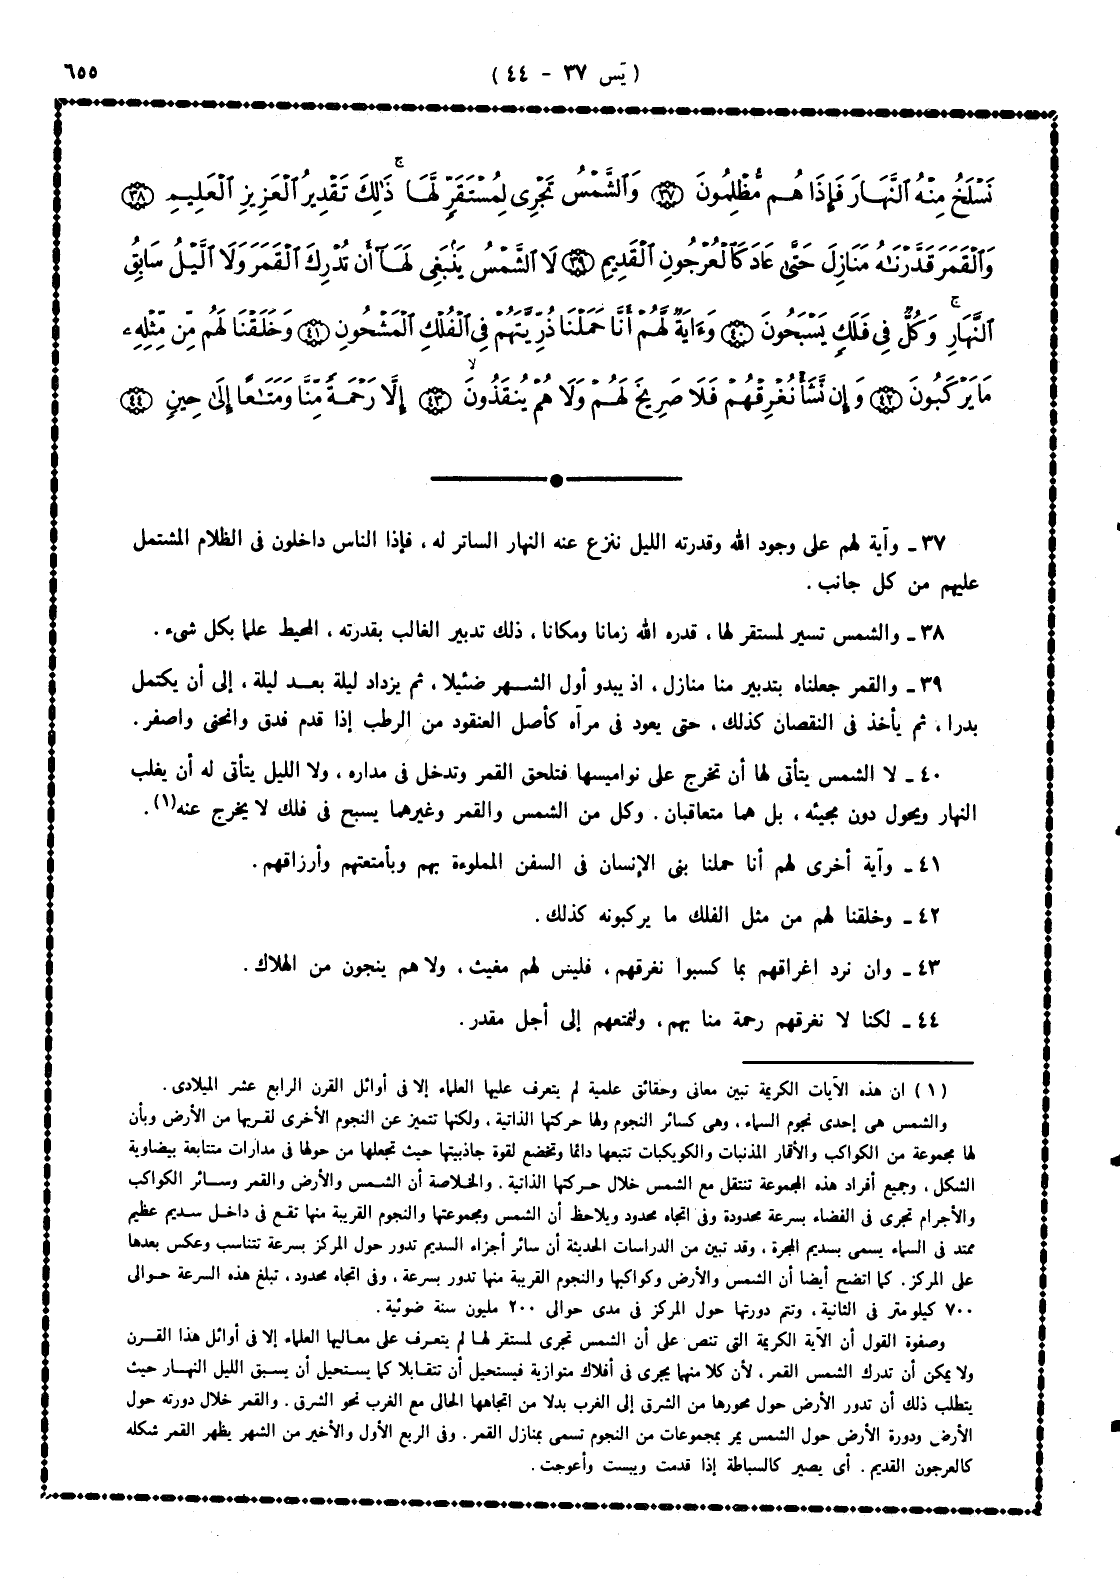 ٦٥٥
( يٓس ٣٧ - ٤٤ )
نَسۡلَخُ مِنۡهُ ٱلنَّهَارَ فَإِذَا هُم مُّظۡلِمُونَ ٣٧ وَٱلشَّمۡسُ تَجۡرِى لِمُسۡتَقَرٍّ لَّهَا ۚ ذَٰلِكَ تَقۡدِيرُ ٱلۡعَزِيزِ ٱلۡعَلِيمِ ٣٨
وَٱلۡقَمَرَ قَدَّرۡنَٰهُ مَنَازِلَ حَتَّىٰ عَادَ كَٱلۡعُرۡجُونِ ٱلۡقَدِيمِ ٣٩ لَا ٱلشَّمۡسُ يَنۢبَغِى لَهَآ أَن تُدۡرِكَ ٱلۡقَمَرَ وَلَا ٱلَّيۡلُ سَابِقُ
ٱلنَّهَارِ ۚ وَكُلٌّ فِى فَلَكٍ يَسۡبَحُونَ ٤٠ وَءَايَةٌ لَّهُمۡ أَنَّا حَمَلۡنَا ذُرِّيَّتَهُمۡ فِى ٱلۡفُلۡكِ ٱلۡمَشۡحُونِ ٤١ وَخَلَقۡنَا لَهُم مِّن مِّثۡلِهِۦ
مَا يَرۡكَبُونَ ٤٢ وَإِن نَّشَأۡ نُغۡرِقۡهُمۡ فَلَا صَرِيخَ لَهُمۡ وَلَا هُمۡ يُنقَذُونَ ۙ ٤٣ إِلَّا رَحۡمَةً مِّنَّا وَمَتَٰعًا إِلَىٰ حِينٍ ٤٤
٣٧ ـ وآية لهم على وجود الله وقدرته الليل ننزع عنه النهار الساتر له ، فإذا الناس داخلون فى الظلام المشتمل
عليهم من كل جانب .
٣٨ ـ والشمس تسير لمستقر لها ، قدره الله زمانا ومكانا ، ذلك تدبير الغالب بقدرته ، المحيط علما بكل شىء .
٣٩ ـ والقمر جعلناه بتدبير منا منازل ، اذ يبدو أول الشهر ضئيلا ، ثم يزداد ليلة بعد ليلة ، إلى أن يكتمل
بدرا ، ثم يأخذ فى النقصان كذلك ، حتى يعود فى مرآه كأصل العنقود من الرطب إذا قدم فدق وانحنى واصفر .
٤٠ ـ لا الشمس يتأتى لها أن تخرج على نواميسها فتلحق القمر وتدخل فى مداره ، ولا الليل يتأتى له أن يغلب
النهار ويحول دون مجيئه ، بل هما متعاقبان . وكل من الشمس والقمر وغيرهما يسبح فى فلك لا يخرج عنه(١) .
٤١ ـ وآية أخرى لهم أنا حملنا بنى الإنسان فى السفن المملوءة بهم وبأمتعتهم وأرزاقهم .
٤٢ ـ وخلقنا لهم من مثل الفلك ما يركبونه كذلك .
٤٣ ـ وان نرد اغراقهم بما كسبوا نغرقهم ، فليس لهم مغيث ، ولا هم ينجون من الهلاك .
٤٤ ـ لكنا لا نغرقهم رحمة منا بهم ، ولنمتعهم إلى أجل مقدر .
( ١ ) ان هذه الآيات الكريمة تبين معانى وحقائق علمية لم يتعرف عليها العلماء إلا فى أوائل القرن الرابع عشر الميلادى .
والشمس هى إحدى نجوم السماء ، وهى كسائر النجوم ولها حركتها الذاتية ، ولكنها تتميز عن النجوم الأخرى لقربها من الأرض وبأن
لها مجموعة من الكواكب والأقمار المذنبات والكويكبات تتبعها دائما وتخضع لقوة جاذبيتها حيث تجعلها من حولها فى مدارات متتابعة بيضاوية
الشكل ، وجميع أفراد هذه المجموعة تنتقل مع الشمس خلال حركتها الذاتية . والخلاصة أن الشمس والأرض والقمر وسائر الكواكب
والأجرام تجرى فى الفضاء بسرعة محدودة وفى اتجاه محدود ويلاحظ أن الشمس ومجموعتها والنجوم القريبة منها تقع فى داخل سديم عظيم
ممتد فى السماء يسمى بسديم المجرة ، وقد تبين من الدراسات الحديثة أن سائر أجزاء السديم تدور حول المركز بسرعة تتناسب وعكس بعدها
على المركز . كما اتضح أيضا أن الشمس والأرض وكواكبها والنجوم القريبة منها تدور بسرعة ، وفى اتجاه محدود ، تبلغ هذه السرعة حوالى
٧٠٠ كيلو متر فى الثانية ، وتتم دورتها حول المركز فى مدى حوالى ٢٠٠ مليون سنة ضوئية .
وصفوة القول أن الآية الكريمة التى تنص على أن الشمس تجرى لمستقر لها لم يتعرف على معاليها العلماء إلا فى أوائل هذا القرن
ولا يمكن أن تدرك الشمس القمر ، لأن كلا منهما يجرى فى أفلاك متوازية فيستحيل أن تتقابلا كما يستحيل أن يسبق الليل النهار حيث
يتطلب ذلك أن تدور الأرض حول محورها من الشرق إلى الغرب بدلا من اتجاهها الحالى مع الغرب نحو الشرق . والقمر خلال دورته حول
الأرض ودورة الأرض حول الشمس يمر بمجموعات من النجوم تسمى بمنازل القمر . وفى الربع الأول والأخير من الشهر يظهر القمر شكله
كالعرجون القديم . أى يصير كالسباطة إذا قدمت ويبست وأعوجت .